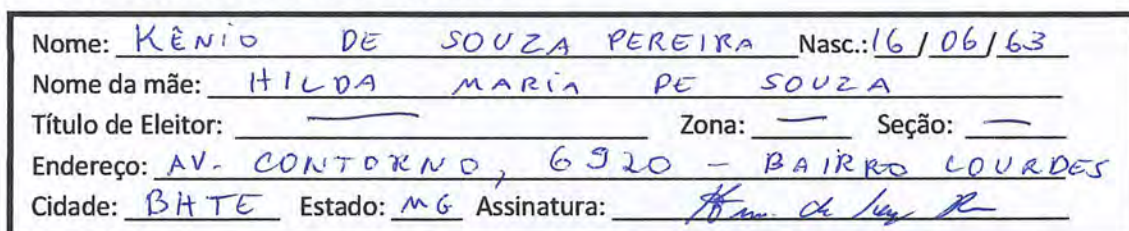 Nome: KÊNIO DE SOUZA PEREIRA Nasc.: 16 / 06 / 63
Nome da mãe: HILDA MARIA DE SOUZA
Título de Eleitor: — Zona: — Seção: —
Endereço: AV. CONTORNO, 6920 - BAIRRO LOURDES
Cidade: BHTE Estado: MG Assinatura: